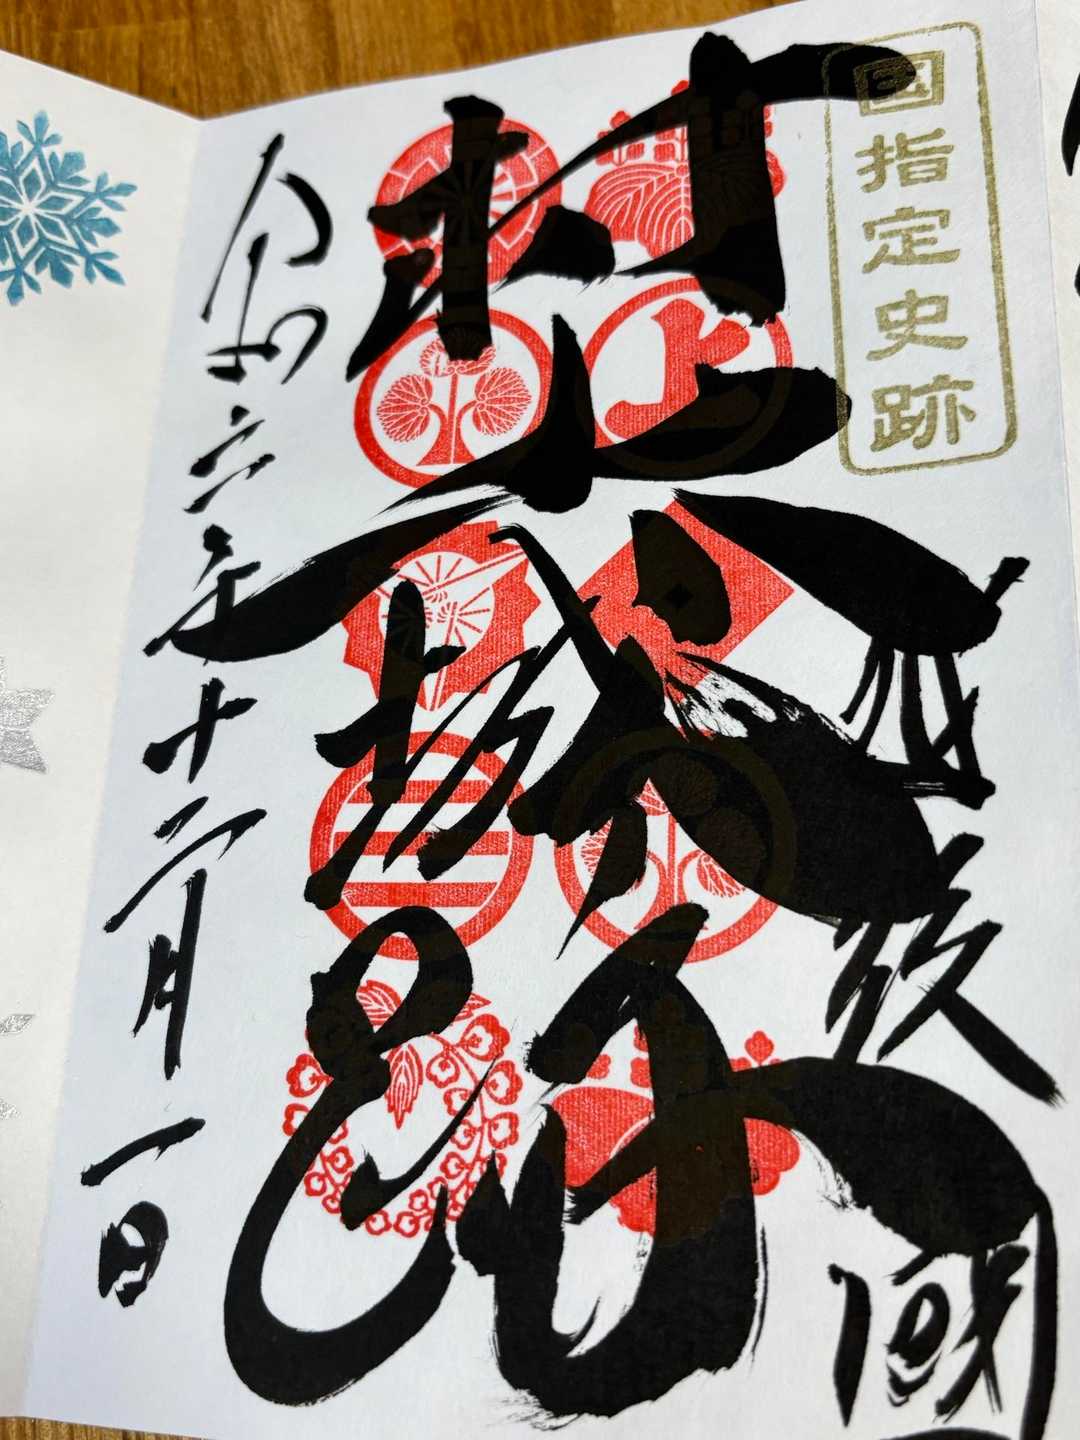 国指定史跡
越後國
村上城跡
上
令和六年十二月一日